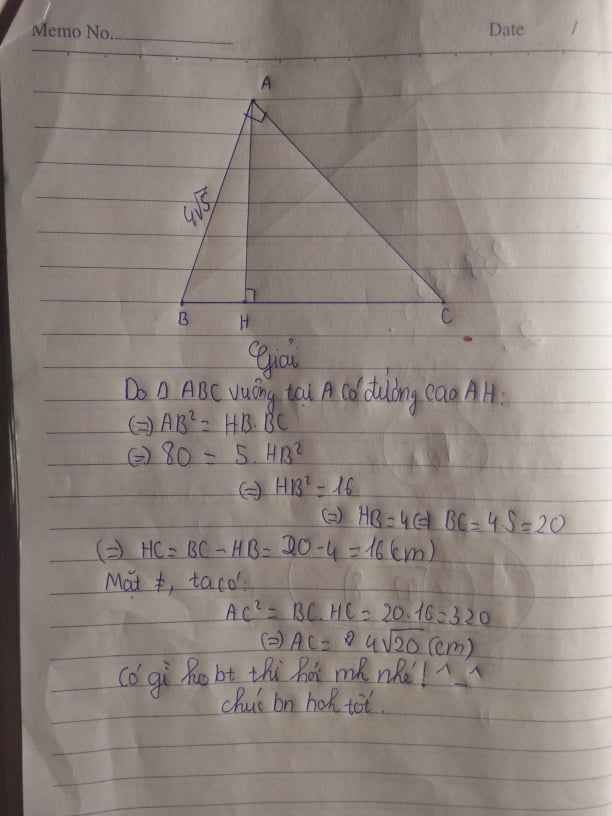 Memo No. Date /
A
4√5
B H C
Giải
Do Δ ABC vuông tại A có đường cao AH:
(=) AB² = HB.BC
(=) 80 = 5.HB²
(=) HB² = 16
(=) HB = 4 (=) BC = 4.5 = 20
(=) HC = BC - HB = 20 - 4 = 16 (cm)
Mặt ≠, ta có:
AC² = BC.HC = 20.16 = 320
(=) AC = 4√20 (cm)
Có gì ko bt thì hỏi mk nhé! ^_^
chúc bn hok tốt.